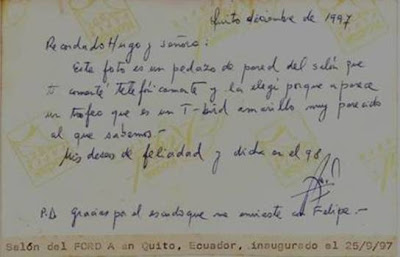 Quito diciembre de 1997
Recordado Hugo y señora:
Esta foto es un pedazo de pared del salón que
comenté telefónicamente y la elegí porque aparece
un trofeo que es un T-bird amarillo muy parecido
al que sabemos -
Mis deseos de felicidad y dicha en el 98
P.D gracias por el escudo que me enviaste con Felipe.-
Salón del FORD A en Quito, Ecuador, inaugurado el 25/9/97